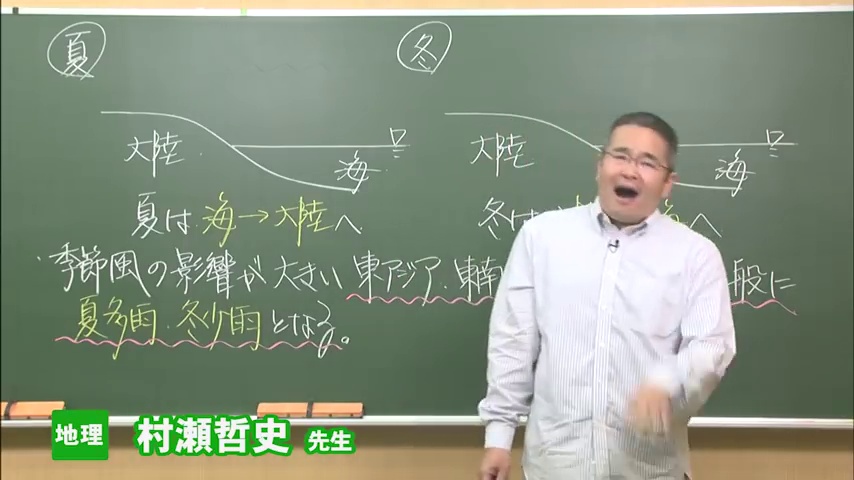 夏
冬
大陸
海
大陸
海
夏は 海→大陸へ
冬は
へ
・季節風の影響が大きい 東アジア・東南
般に
夏多雨・冬少雨となる。
地理
村瀬哲史 先生